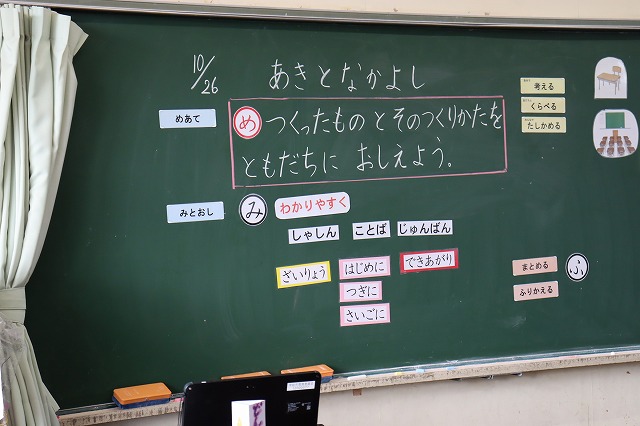 10/26
あきとなかよし
めあて
め つくったものとそのつくりかたを
ともだちに おしえよう。
考える
くらべる
たしかめる
みとおし
み わかりやすく
しゃしん ことば じゅんばん
ざいりょう はじめに できあがり
つぎに
さいごに
まとめる
ふりかえる
ふ